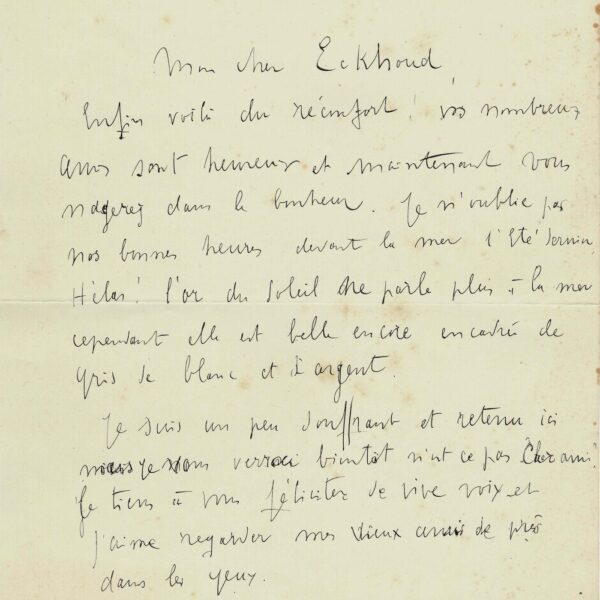 Mon cher Eekhoud,
Enfin voilà du réconfort! vos nombreux
amis sont heureux et maintenant vous
nagerez dans le bonheur. Je n'oublie pas
nos bonnes heures devant la mer l'Eté dernier.
Hélas! l'or du soleil ne parle plus à la mer
cependant elle est belle encore encadrée de
gris de blanc et d'argent.
Je suis un peu souffrant et retenu ici
mais je vous verrai bientôt n'est ce pas Cher ami?
Je tiens à vous féliciter de vive voix et
j'aime regarder mes vieux amis de près
dans les yeux.